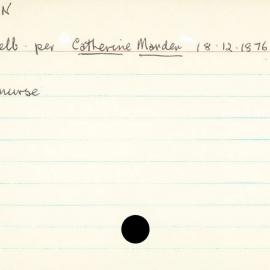 N
elb. per Catherine Marden 18.12.1876
nurse